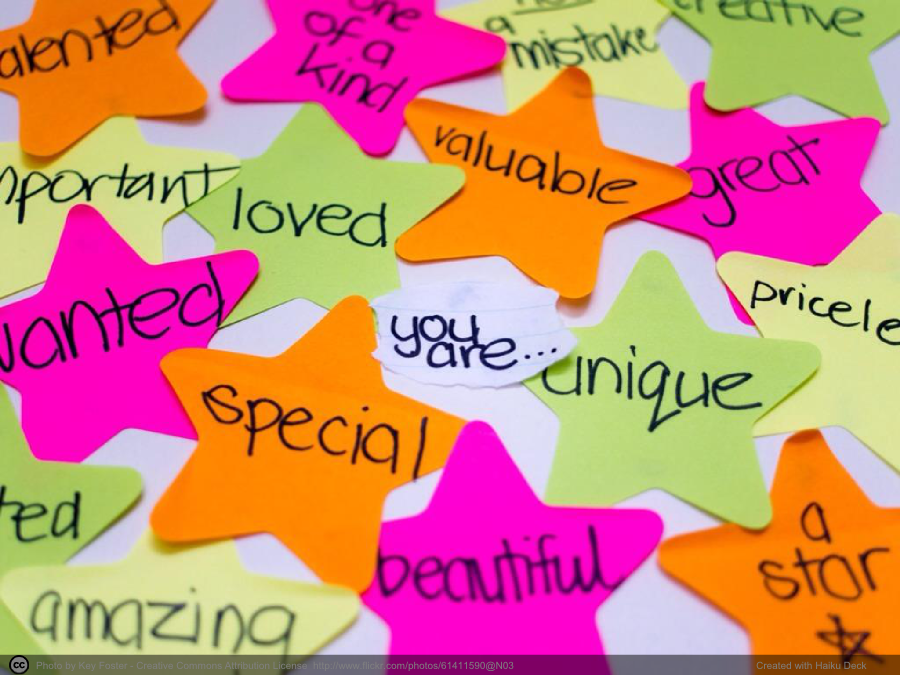 alented
one
of a
kind
a
mistake
creative
valuable
great
mportant
loved
wanted
pricele
you
are...
unique
special
ted
beautiful
a
star
amazing
Photo by Key Foster - Creative Commons Attribution License http://www.flickr.com/photos/61411590@N03
Created with Haiku Deck